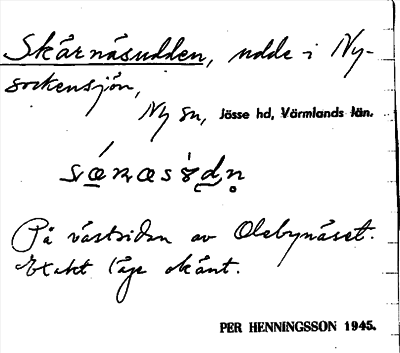 Skärnäsudden, udde i Ny-
sockensjön,
Ny sn, Jösse hd, Värmlands län.
På västsidan av Olebynäset.
Exakt läge okänt.
PER HENNINGSSON 1945.